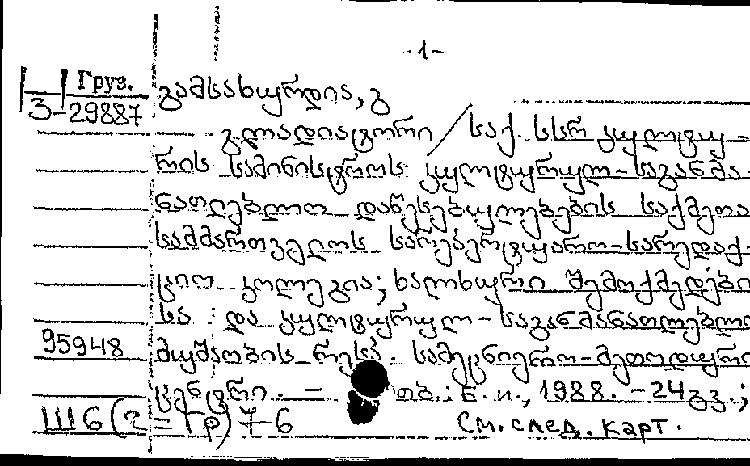 -1-
Груз.
3-29887
გამსახურდია, გ
გლადიატორი / საქ. სსრ კულტუ-
რის სამინისტროს კულტურულ-საგანმა-
ნათლებლო დაწესებულებების საქმეთა
სამმართველოს სარეპერტუარო-სარედაქ-
ციო კოლეგია; ხალხური შემოქმედები-
სა და კულტურულ-საგანმანათლებლო
95948
მუშაობის რესპ. სამეცნიერო-მეთოდური
ცენტრი. - თბ.: ბ. ი., 1988. - 24 გვ.;
Ш6(2=Гр)7-6
См. след. карт.